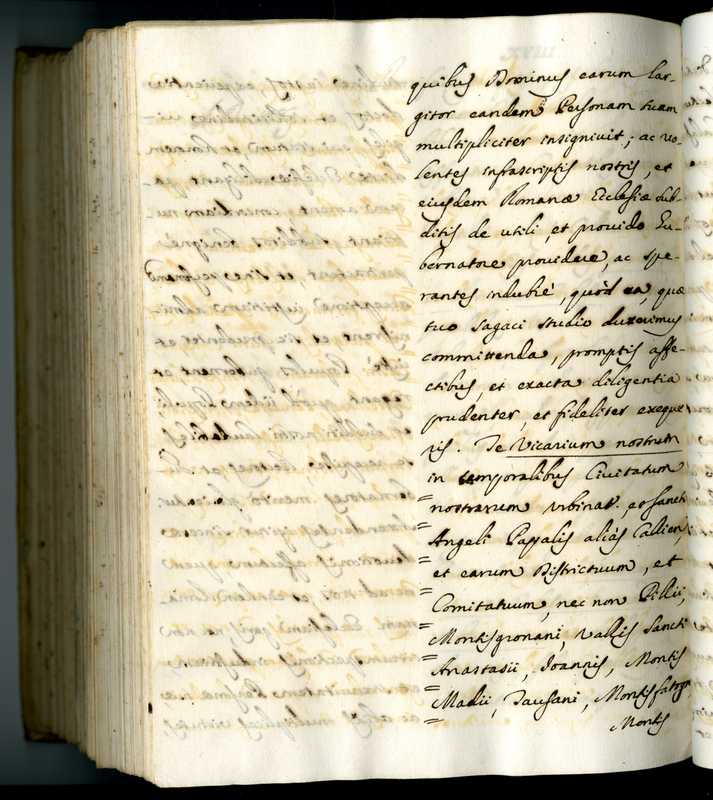 quibus Dominus earum lar-
gitor eandem Personam tuam
multipliciter insigniuit; ac uo-
lentes infrascriptis nostris, et
eiusdem Romanæ Ecclesiæ sub-
ditis de utili, et prouido Gu-
bernatore prouidere, ac spe-
rantes indubiè, quòd ea, quæ
tuo sagaci studio duxerimus
committenda, promptis affe-
ctibus, et exacta diligentia
prudenter, et fideliter exeque
ris. Te Vicarium nostrum
in temporalibus Ciuitatum
nostrarum Vrbinat. et Sancti
Angeli Papalis aliàs Callien,
et earum Districtuum, et
Comitatuum, nec non
Montisgronani, Vallis Sancti
Anastasii, Joannis, Montis
Madii, Tausani,
Montis